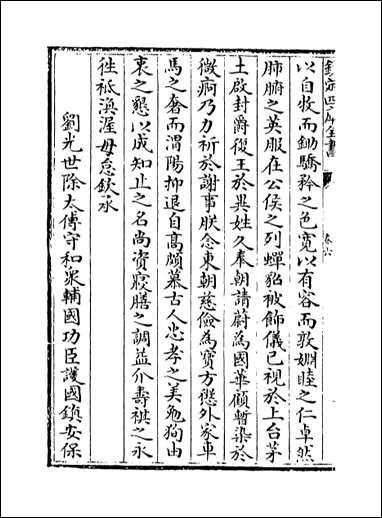 欽定四庫全書
卷六
以自收而鋤驕矜之色寛以有容而敦婣睦之仁卓然
肺腑之英服在公侯之列蟬貂被飾儀已視於上台茅
土啟封爵復王於異姓久奉朝請蔚為國華顧暫染於
微痾乃力祈於謝事朕念東朝慈儉為寳方懲外家車
馬之奢而渭陽抑退自髙頗慕古人忠孝之美勉狥由
衷之懇以成知止之名尚資寢膳之調益介壽祺之永
往祗渙渥毋怠欽承
劉光世除太傅守和衆輔國功臣護國鎮安保